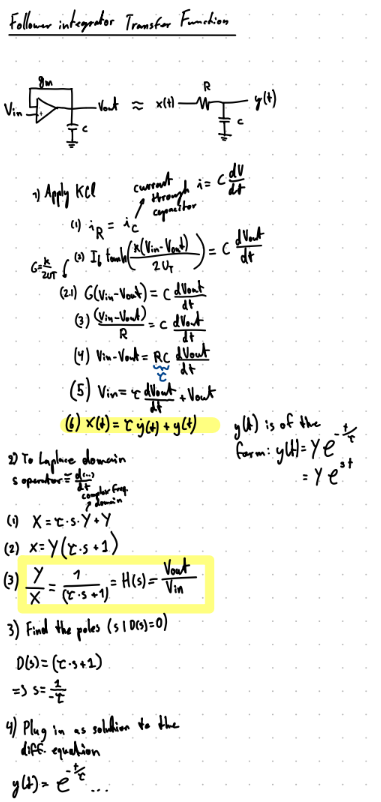 Follower integrator Transfer Function
gm
R
Vin
Vout ≈ x(t)
y(t)
c
c
1) Apply KCl
current through capacitor
i = C dV/dt
(1) iR = ic
G = k/2UT
(2) Ib tanh(κ(Vin-Vout)/2UT) = C dVout/dt
(2.1) G(Vin-Vout) = C dVout/dt
(3) (Vin-Vout)/R = C dVout/dt
(4) Vin-Vout = RC dVout/dt
τ
(5) Vin = τ dVout/dt + Vout
(6) x(t) = τ ẏ(t) + y(t)
y(t) is of the
form: y(t) = Y e^(-t/τ)
= Y e^(st)
2) To Laplace domain
s operator = d(...)/dt
complex freq. domain
(1) X = τ·s·Y + Y
(2) X = Y(τ·s+1)
(3) Y/X = 1/(τ·s+1) = H(s) = Vout/Vin
3) Find the poles (s | D(s)=0)
D(s) = (τ·s+1)
=> s = 1/-τ
4) Plug in as solution to the
diff. equation
y(t) = e^(-t/τ) ...